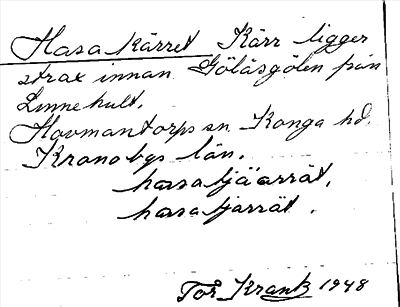 Hasa kärret Kärr ligger
strax innan Gölåsgölen från
Linnehult.
Hovmantorps sn. Konga hd.
Kronobgs län.
hasa tjäarrät,
hasa tjarrät.
Tor Krantz 1948